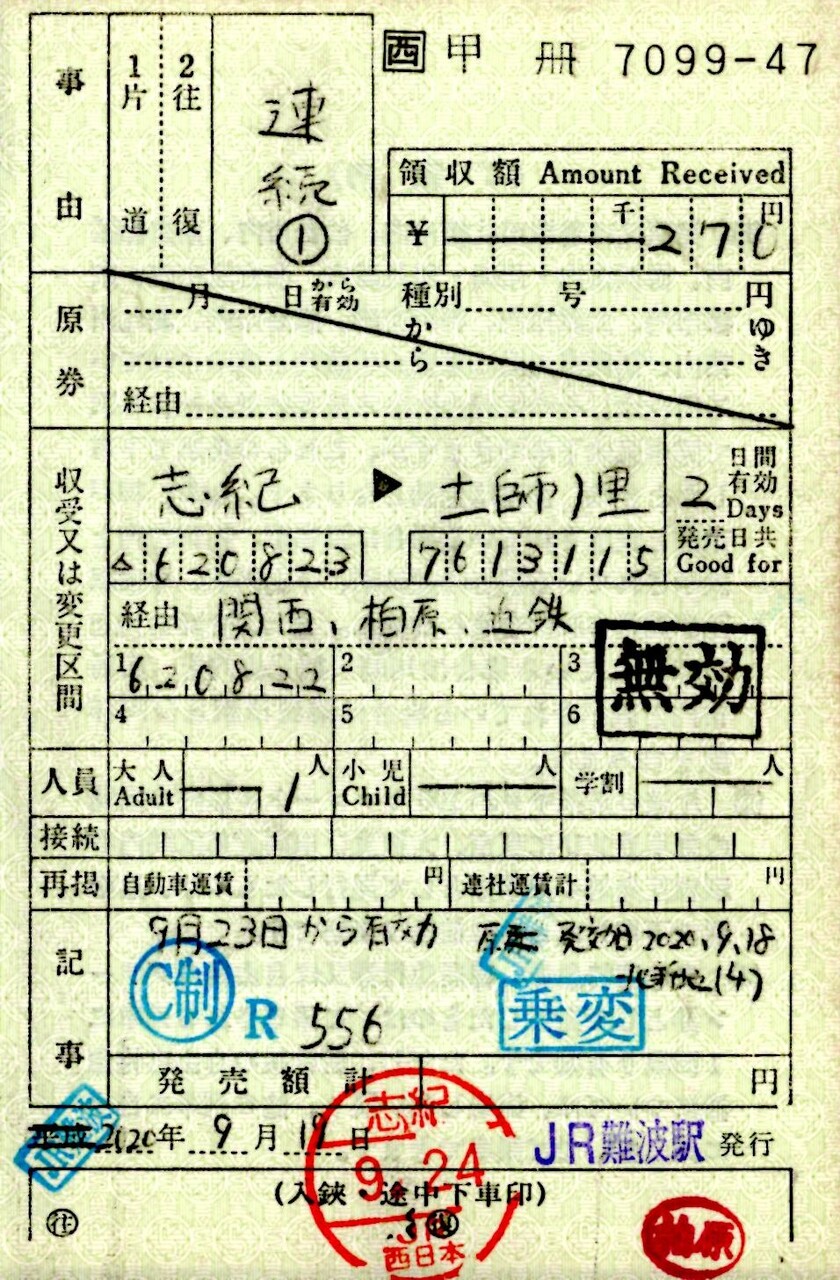 西 甲 冊 7099-47
事由
1片道
2往復
連続①
領収額 Amount Received
¥ 千 270 円
原券
月 日から有効 種別 号 円
から ゆき
経由
収受又は変更区間
志紀 ▶ 土師ノ里
2 日間有効 Days
発売日共 Good for
620823 7613115
経由 関西、柏原、近鉄
1 620822 2 3
無効
4 5 6
人員 大人 Adult 1人 小児 Child 人 学割 人
接続
再掲 自動車運賃 円 連社運賃計 円
記事
9月23日から有効 発効日2020.9.18
(4)
C制 R 556 乗変
発売額計 円
JR難波
平成 2020年 9月19日 JR難波駅 発行
志紀
9.24
JR
西日本
(入鋏・途中下車印)
往 復
柏原